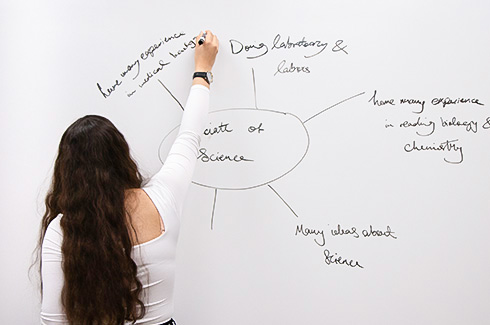 have many experience
in medical
Doing laboratory &
labors
have many experience
in reading biology &
chemistry
of
Science
Many ideas about
Science